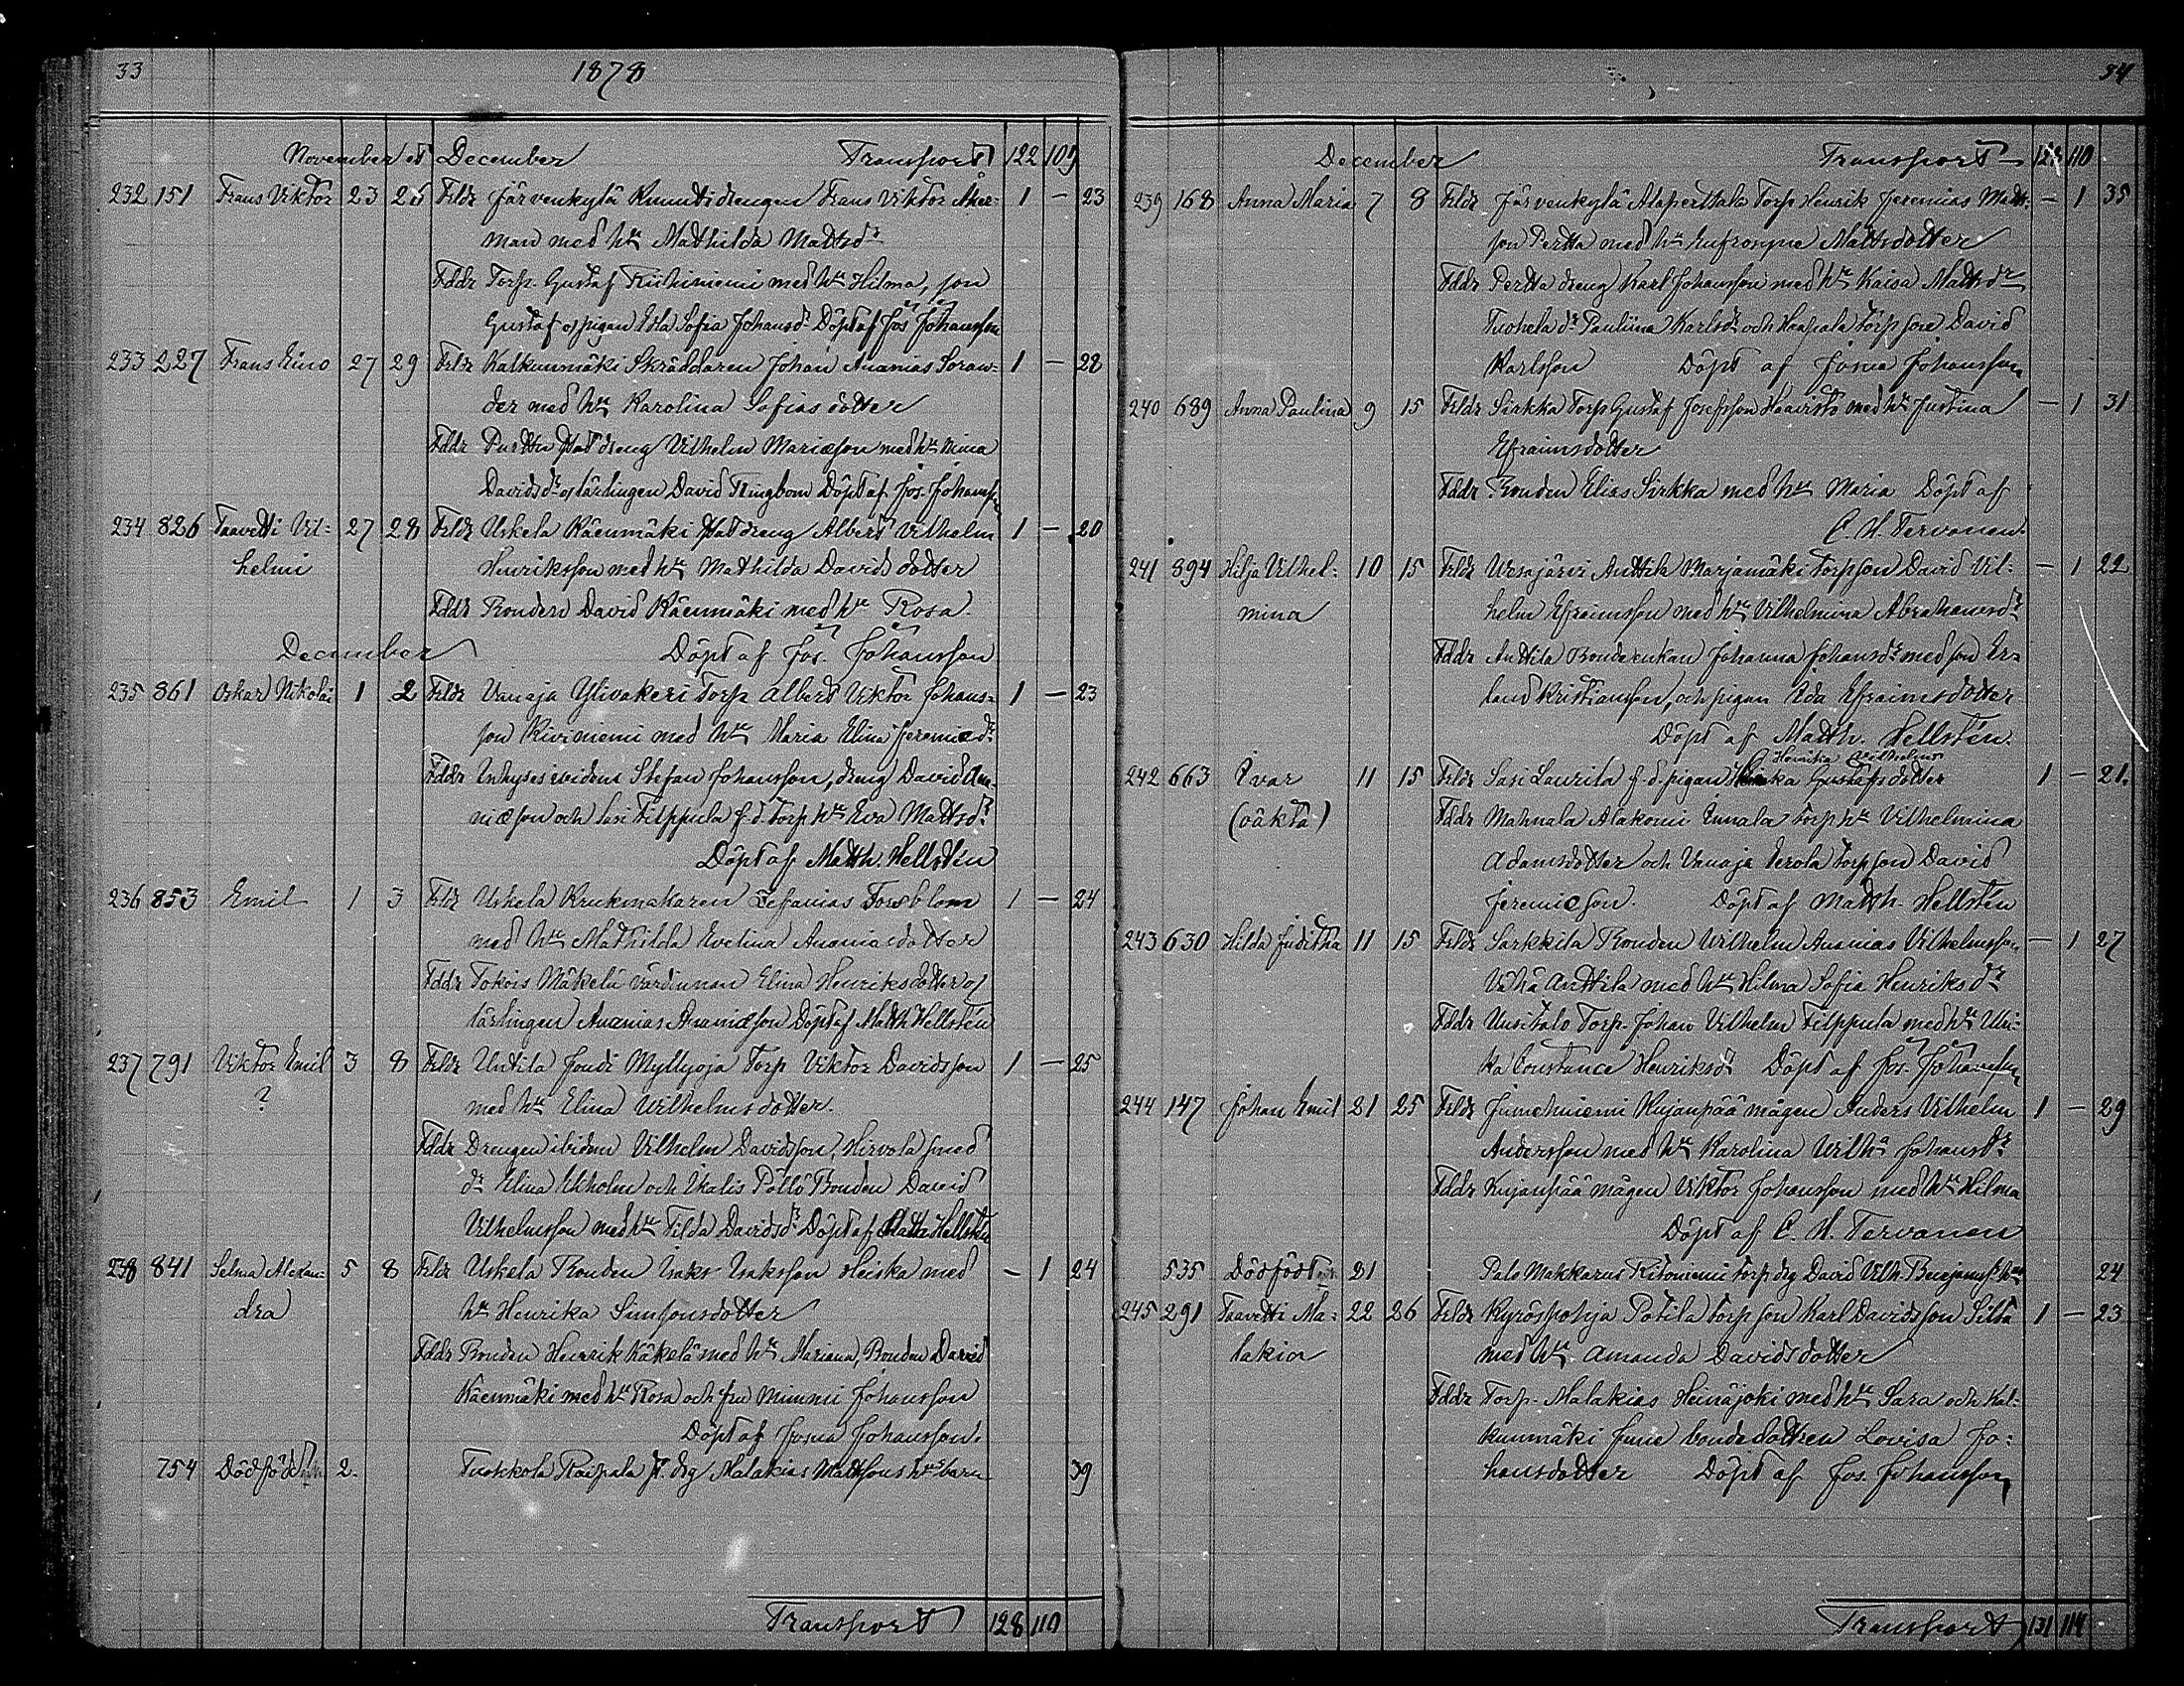 33 1878
November et December Transport 122 109
232 151 Frans Viktor 23 25 Frldr Järvenkylä Knuuttidrengen Frans Viktor Åker- 1 — 23
man med h:u Mathilda Mattsdr
Fddr Torp. Gustaf Riihiniemi med h:u Hilma, son
Gustaf o pigan Eda Sofia Johansdr Döpt af Jos. Johansson
233 227 Frans Eino 27 29 Frldr Kalkunmäki Skräddaren Johan Ananias Soran- 1 — 28
der med h:u Karolina Sofiasdotter
Fddr dreng Vilhelm Mariæson med h:u Mina
Davidsdr o lärlingen David Ringbom Döpt af Jos. Johansson
234 826 Taavetti Vil- 27 28 Frldr Uskela Käenmäki statdreng Albert Vilhelm 1 — 20
helmi Henriksson med h:u Mathilda Davidsdotter
Fddr Bonden David Käenmäki med h:u Rosa.
December Döpt af Jos. Johansson
235 861 Oskar Nikolai 1 2 Frldr Vanaja Ylivakeri Torp Albert Viktor Johans- 1 — 23
son Riviniemi med h:u Maria Elina Jeremiædr
Fddr Inhyses ibidem Stefan Johansson, dreng David Ana-
niæson och Sasi Filppula f.d. torp h:u Eva Mattsdr
Döpt af Matth. Hellstén
236 853 Emil 1 3 Frldr Uskela Krukmakaren Zefanias Forsblom 1 — 24
med h:u Mathilda Evelina Ananiædotter
Fddr Tokois Mäkelä värdinnan Elina Henriksdotter o
lärlingen Ananias Ananiæson Döpt af Matth Hellstén
237 791 Viktor Emil 3 8 Frldr Untila Joudi Myllyoja Torp Viktor Davidsson 1 — 25
? med h:u Elina Vilhelmsdotter.
Fddr Drengen ibidem Vilhelm Davidsson, Hirvola smed
dr Elina Ekholm och Ikalis Pöllö Bonden David
Vilhelmsson med h:u Tilda Davidsdr Döpt af Matth Hellstén
238 841 Selma Alexan- 5 8 Frldr Uskela Bonden Isaks Isaksson Heiska med — 1 24
dra h:u Henrika Simsonsdotter
Fddr Bonden Henrik Käkelä med h:u Mariana, Bonden David
Käenmäki med h:u Rosa och fru Mimmi Johansson
Döpt af Josua Johansson.
754 Dödfödt 2. Tuokkola Raipala st. drg Malakias Mattsons h:us barn 39
Transport 128 110
34
December Transport 128 110
239 168 Anna Maria 7 8 Frldr Järvenkylä Alaperttala Torp Henrik Jeremias Matts- — 1 35
son Pertta med h:u Eufrosyne Mattsdotter
Fddr Pertta dreng Karl Johansson med h:u Kaisa Mattsdr
Tuohela dr Pauliina Karlsdr och Haapala torp son David
Karlsson Döpt af Josua Johansson
240 689 Anna Paulina 9 15 Frldr Sirkka Torp Gustaf Josefsson Haavisto med h:u Justina — 1 31
Efraimsdotter
Fddr Bonden Elias Sirkka med h:u Maria Döpt af
C. H. Tervonen.
241 894 Hilja Vilhel- 10 15 Frldr Vesajärvi Anttila Marjamäki Torpson David Vil- — 1 22
mina helm Efraimsson med h:u Vilhelmina Abrahamsdr
Fddr Anttila Bondeenkan Johanna Johansdr med son Er-
land Kristiansson, och pigan Ida Efraimsdotter
Döpt af Matth. Hellstén.
Henrika Vilhelmina
242 663 Ivar 11 15 Frldr Sasi Laurila f.d. pigan Gustafsdotter 1 — 21.
(oäkta) Fddr Mahnala Alakomi Innala torp h:u Vilhelmina
Adamsdotter och Vanaja Jerola torp son David
Jeremiæson. Döpt af Matth. Hellstén
243 630 Hilda Juditha 11 15 Frldr Sarkkila Bonden Vilhelm Ananias Vilhelmsson — 1 27
Vähä Anttila med h:u Hilma Sofia Henriksdr
Fddr Uusitalo Torp. Johan Vilhelm Filppula med h:u Ulri-
ka Constance Henriksdr Döpt af Jos. Johansson
244 147 Johan Emil 21 25 Frldr Jumesniemi Kujanpää mågen Anders Vilhelm 1 — 29
Andersson med h:u Karolina Vilh:a Johansdr
Fddr Kujanpää mågen Viktor Johansson med h:u Hilma
Döpt af C. H. Tervonen
535 Dödfödt 21 Palo Makkarus Kitoniemi torp drg David Vilh. Benjamss h:us 24
245 291 Taavetti Ma- 22 26 Frldr Kyröspohja Potila torp son Karl Davidsson Silta 1 — 23
lakia med h:u Amanda Davidsdotter
Fddr Torp. Malakias Heinäjoki med h:u Sara och Kal-
kunmäki June bondedottren Lovisa Jo-
hansdotter Döpt af Jos. Johansson
Transport 131 114